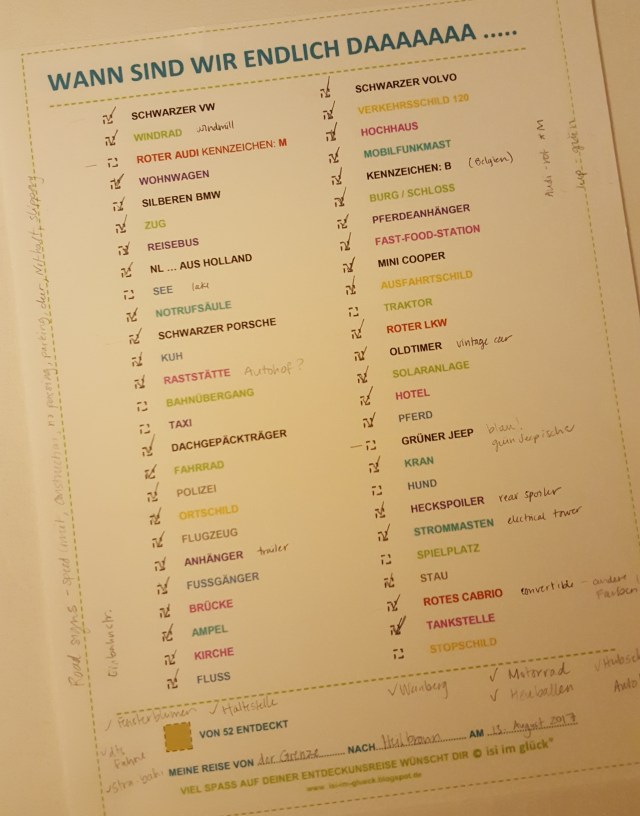 WANN SIND WIR ENDLICH DAAAAAAA .....
SCHWARZER VW
WINDRAD windmill
ROTER AUDI KENNZEICHEN: M
WOHNWAGEN
SILBEREN BMW
ZUG
REISEBUS
NL ... AUS HOLLAND
SEE lake
NOTRUFSÄULE
SCHWARZER PORSCHE
KUH
RASTSTÄTTE Autohof?
BAHNÜBERGANG
TAXI
DACHGEPÄCKTRÄGER
FAHRRAD
POLIZEI
ORTSCHILD
FLUGZEUG
ANHÄNGER trailer
FUSSGÄNGER
BRÜCKE
AMPEL
KIRCHE
FLUSS
SCHWARZER VOLVO
VERKEHRSSCHILD 120
HOCHHAUS
MOBILFUNKMAST
KENNZEICHEN: B (Belgien)
BURG / SCHLOSS
PFERDEANHÄNGER
FAST-FOOD-STATION
MINI COOPER
AUSFAHRTSCHILD
TRAKTOR
ROTER LKW
OLDTIMER vintage car
SOLARANLAGE
HOTEL
PFERD
GRÜNER JEEP blau!
KRAN
HUND
HECKSPOILER rear spoiler
STROMMASTEN electrical tower
SPIELPLATZ
STAU
ROTES CABRIO convertible - andere Farben
TANKSTELLE
STOPSCHILD
Audi - rot
Jeep
Road signs - speed limit, construction, no passing, parking
✓ Haltestelle
✓ Weinberg
✓ Motorrad
✓ Heuballen
Auto
dts
Fahne
VON 52 ENTDECKT
MEINE REISE VON der Grenze NACH Heilbronn AM 13. August 2017
VIEL SPASS AUF DEINER ENTDECKUNSREISE WÜNSCHT DIR © isi im glück®
www. isi-im-glueck.blogspot.de